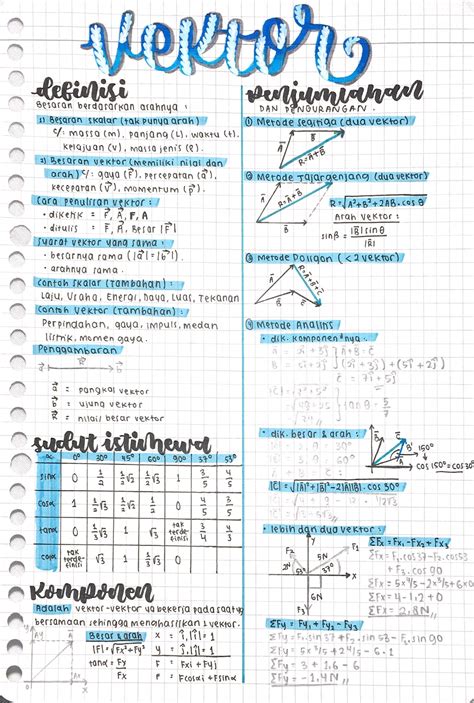 vektor
definisi
Besaran berdasarkan arahnya :
1) Besaran skalar (tak punya arah)
c/: massa (m), panjang (L), waktu (t),
kelajuan (v), massa jenis (ρ).
2) Besaran vektor (memiliki nilai dan
arah) c/: gaya (F⃗), percepatan (a⃗),
kecepatan (v⃗), momentum (p⃗).
Cara penulisan vektor :
• diketik = F⃗, A⃗, F, A
• ditulis = F⃗, A⃗, Besar |F⃗|
syarat vektor yang sama :
• besarnya sama (|a⃗| = |b⃗|).
• arahnya sama.
Contoh skalar (tambahan) :
Laju, Usaha, Energi, Daya, Luas, Tekanan
Contoh vektor (tambahan) :
Perpindahan, gaya, impuls, medan
listrik, momen gaya.
Penggambaran
= pangkal vektor
= ujung vektor
= nilai/besar vektor
sudut istimewa
∝ 0° 30° 45° 60° 90° 37° 53°
sin∝ 0 1/2 1/2√2 1/2√3 1 3/5 4/5
cos∝ 1 1/2√3 1/2√2 1/2 0 4/5 3/5
tan∝ 0 1/3√3 1 √3 tak terde-finisi 3/4 4/3
tak terde-finisi √3 1 1/3√3 0
komponen
Adalah vektor-vektor yg bekerja pada saat yg
bersamaan sehingga menghasilkan 1 vektor.
Ay
A
Ax
x
Besar & arah
|F| = √Fx² + Fy²
tanα = Fy/Fx
x = î, |î| = 1
y = ĵ, |ĵ| = 1
F = Fxi + Fyj
F = Fcosαi + Fsinα
penjumlahan
DAN PENGURANGAN.
① Metode segitiga (dua vektor)
A⃗
B⃗
R = A⃗ + B⃗
② Metode Jajargenjang (dua vektor)
A⃗
R = A⃗ + B⃗
B⃗
R = √A² + B² + 2AB . cos θ
Arah vektor :
sinβ = |B|sinθ/|R|
③ Metode Poligon (<2 vektor)
A⃗
R = A⃗ + B⃗ + C⃗
④ Metode Analitis
• dik. komponen²nya.
c⃗ = 7î + 5ĵ
• dik. besar & arah :
B
B'
150°
A
cos 150° = cos 30°
|C⃗| = √|A|² + |B|² - 2|A||B| . cos 30°
• lebih dari dua vektor :
F₂
F₁
5N
2N
53°
37°
x
6N
F₃
ΣFx = Fx₁ - Fx₂ + Fx₃
ΣFx = F₁ cos37 - F₂ cos53
+ F₃ . cos 90
ΣFx = 5×4/5 - 2×3/5 + 6×0
ΣFx = 4 - 1,2 + 0
ΣFx = 2,8N //
ΣFy = Fy₁ + Fy₂ - Fy₃
ΣFy = F₁ sin 37 + F₂ . sin 53 - F₃ . sin 90
ΣFy = 5×3/5 + 2×4/5 - 6 . 1
ΣFy = 3 + 1,6 - 6
ΣFy = -1,4N //